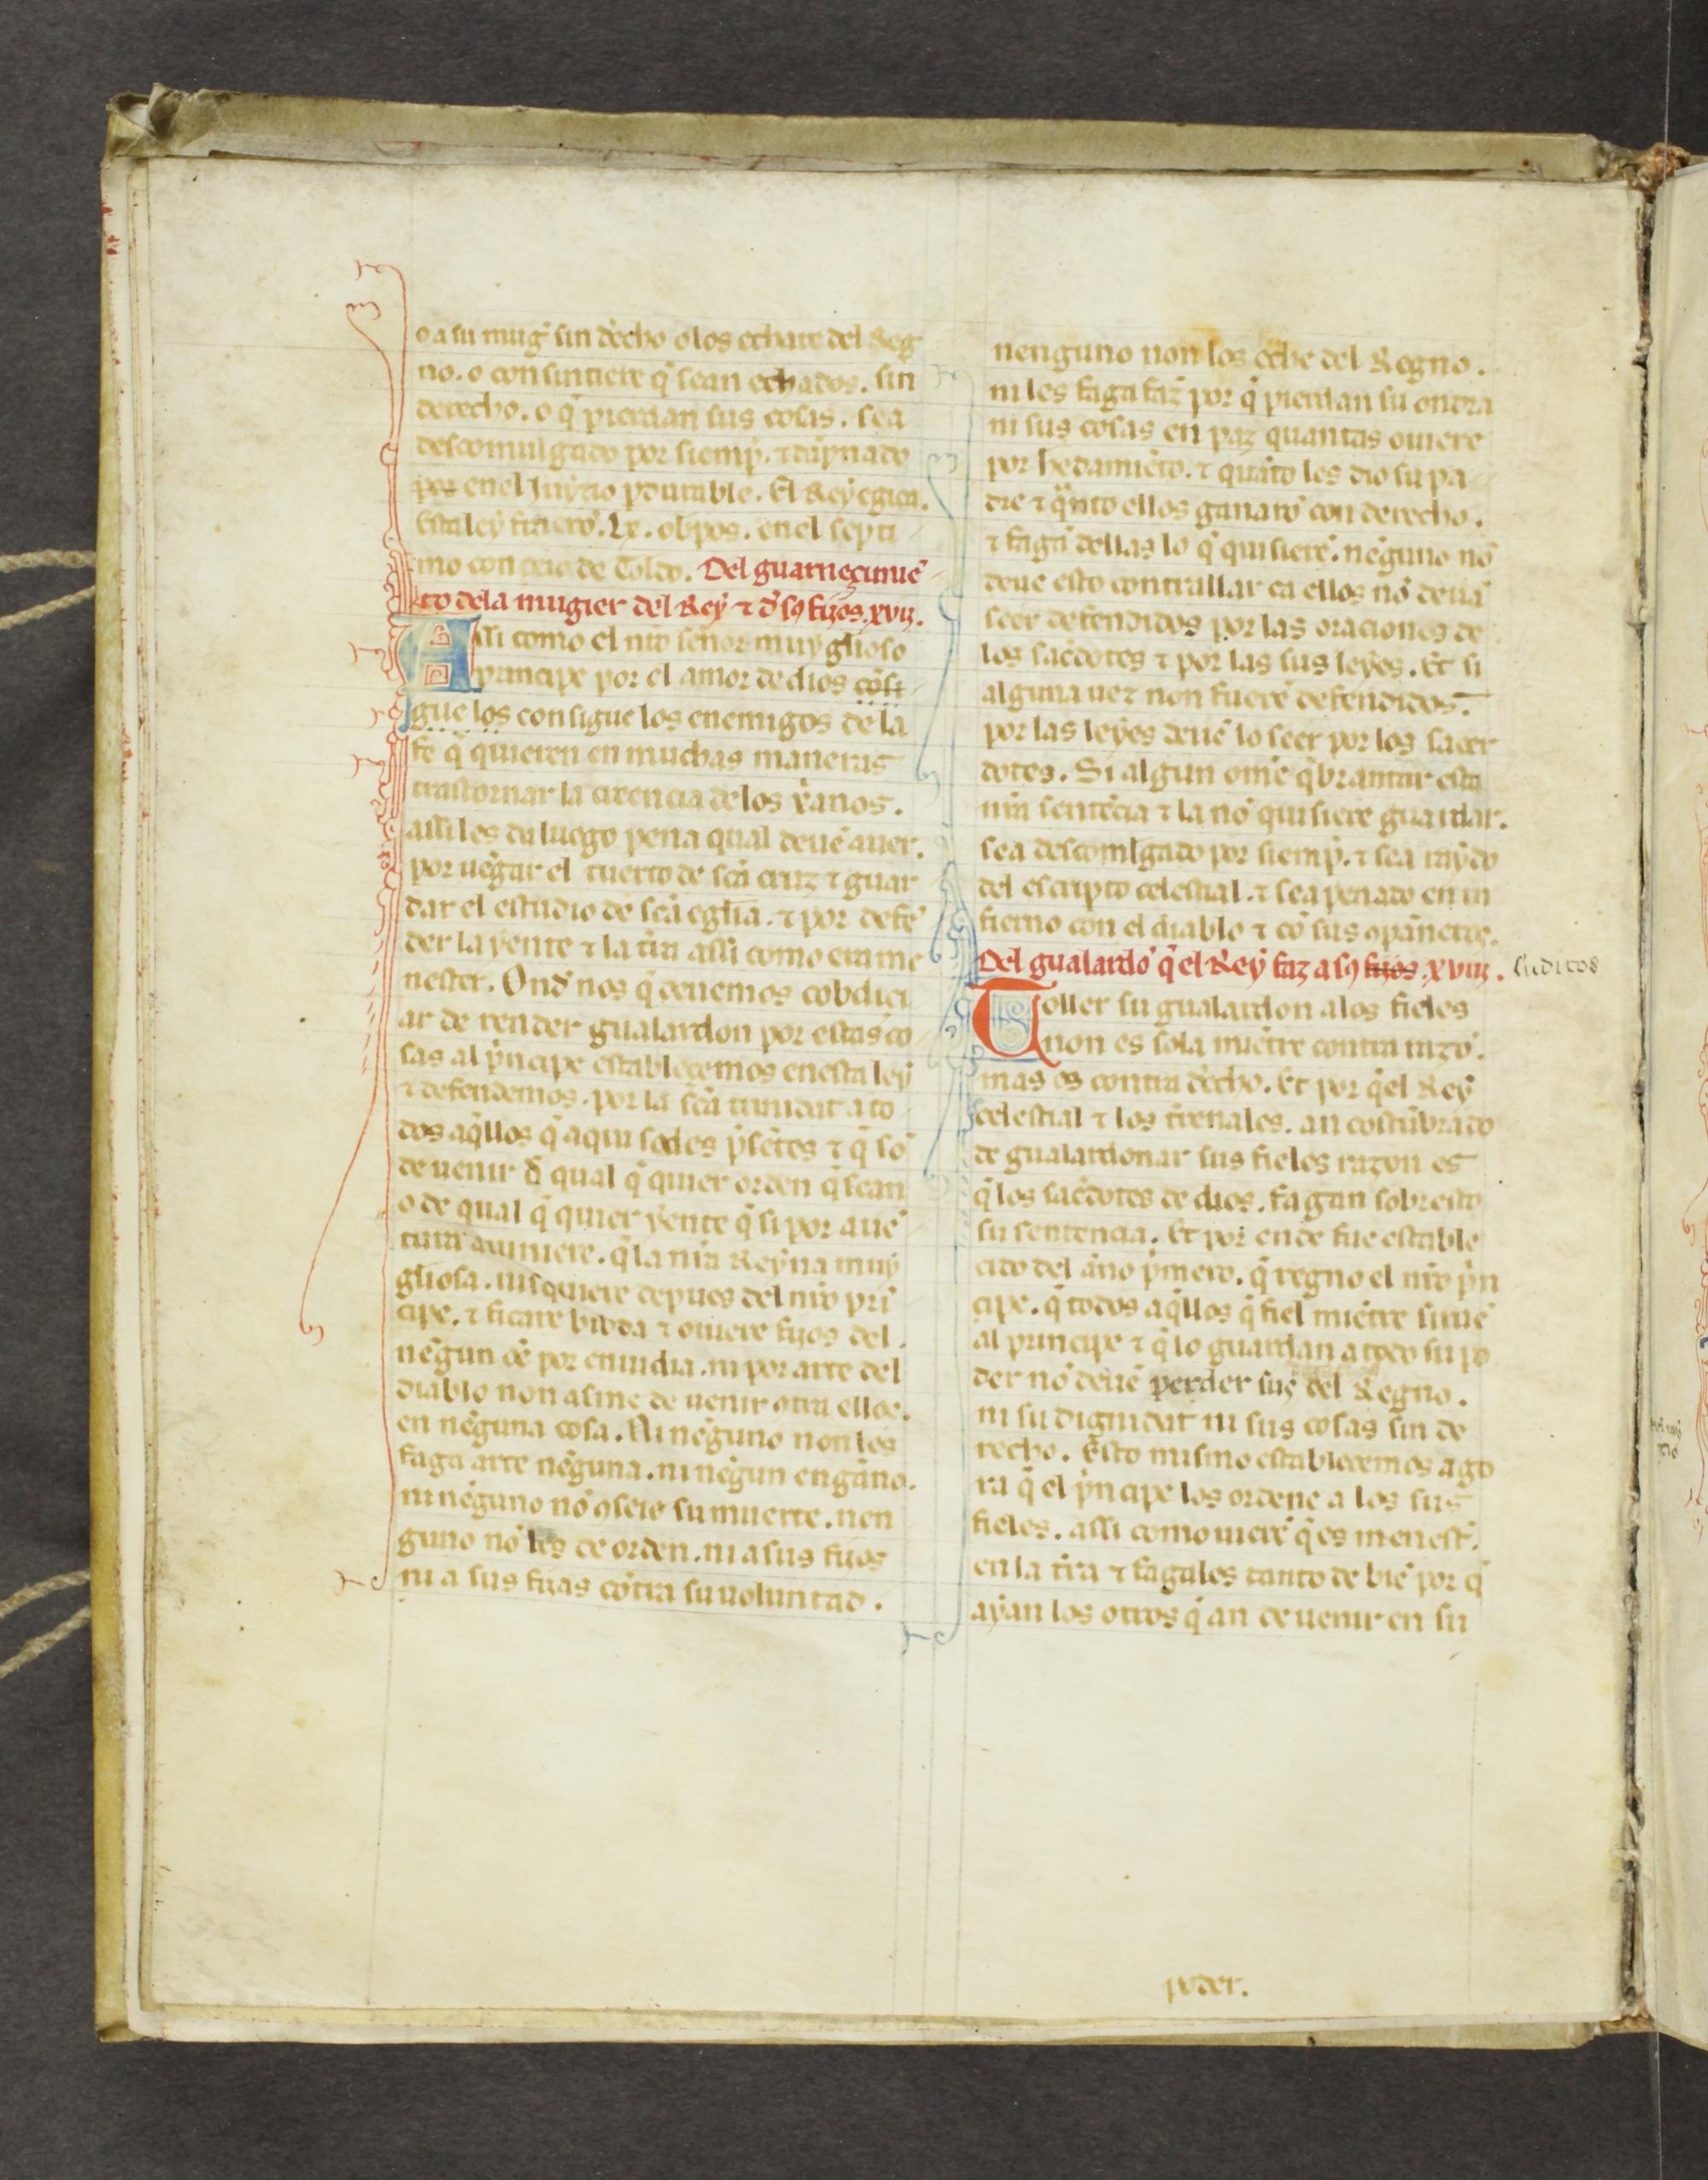 o a su mug̃ sin d̃echo o los echare del Reg
no. o consintiere q̃ sean echados. sin
derecho. o q̃ pierdan sus cosas. sea
descomulgado por siemp̃. ⁊ dãpnado
por en el Juyzio ꝑdurable. El Rey egica.
Esta ley fizierõ. Lx. obpos. en el sep ti
mo conçeio de Toledo. Del guarneçimiẽ
to dela mugier del Rey ⁊ d̃ sꝯ fijos. xvij.
Assi como el nr̃o señor muy gl̃ioso
principe por el amor de dios cõsi
gue los consigue los enemigos de la
fe q̃ quieren en muchas maneras
trastornar la creencia de los xp̃anos.
assi les da luego pena qual deuẽ auer.
por uẽgar el tuerto de sc̃a cruz ⁊ guar
dar el estudio de sc̃a egl̃ia. ⁊ por defẽ
der la yente ⁊ la tr̃ra assi como era me
nester. Ond̃ nos q̃ deuemos cobdici
ar de render gualardon por estas co
sas al p̃ncipe establecemos en esta ley
⁊ defendemos. por la sc̃a trinidat a to
dos aq̃llos q̃ aqui sodes p̃sẽtes ⁊ q̃ sõ
de uenir d̃ qual q̃ quier orden q̃ sean
o de qual q̃ quier yente q̃ si por auẽ
tura auiniere. q̃ la nr̃a Reyna muy
gl̃iosa. uisquiere depues del nr̃o prĩ
cipe. ⁊ ficare biuda ⁊ ouiere fijos del.
nẽgun oẽ por enuidia. ni por arte del
diablo non asme de uenir ꝯtra ellos.
en nẽguna cosa. Ni nẽguno non les
faga arte nẽguna. ni nẽgun engãno.
ni nẽguno nõ ꝯseie su muerte. nen
guno nõ les de orden. ni a sus fijos
ni a sus fijas cõtra su uoluntad.
nenguno non los eche del Regno.
ni les faga faz̃ por q̃ pierdan su ondra
ni sus cosas en paz quantas ouiere
por hedamiẽto. ⁊ quãto les dio su pa
dre ⁊ q̃nto ellos ganarõ con derecho.
⁊ fagã dellas lo q̃ quisierẽ. nẽguno nõ
deue esto contrallar ca ellos nõ deuã
seer defendidos por las oraciones de
los sac̃dotes ⁊ por las sus leyes. Et si
alguna uez non fuerẽ defendidos.
por las leyes deuẽ lo seer por los sacer
dotes. Si algun omẽ q̃brantar esta
nr̃a sentẽcia ⁊ la nõ quisiere guardar.
sea descomlgado por siemp̃. ⁊ sea raydo
del escripto celestial. ⁊ sea penado en in
fierno con el diablo ⁊ cõ sus ꝯpãneros.
Del gualardõ q̃ el Rey faz a sꝯ fijos. xviij. suditos
Toller su gualardon a los fieles
non es sola miẽtre contra razõ.
mas es contra d̃echo. Et por q̃ el Rey
celestial ⁊ los tr̃renales. an costũbrado
de gualardonar sus fieles razon es
q̃ los sac̃dotes de dios. fagan sobr esto
su sentencia. Et por ende fue estable
cido del ãno p̃mero. q̃ regno el nr̃o p̃n
cipe. q̃ todos aq̃llos q̃ fiel miẽtre siruẽ
al principe ⁊ q̃ lo guardan a todo su po
der nõ deuẽ perder sus del Regno.
ni su dignidat ni sus cosas sin de
recho. Esto mismo establecemos ago
ra q̃ el p̃ncipe los ordene a los sus
fieles. assi como uierẽ q̃ es menest̃.
en la tr̃ra ⁊ fagales tanto de biẽ por q̃
ayan los otros q̃ an de uenir en su
poder.